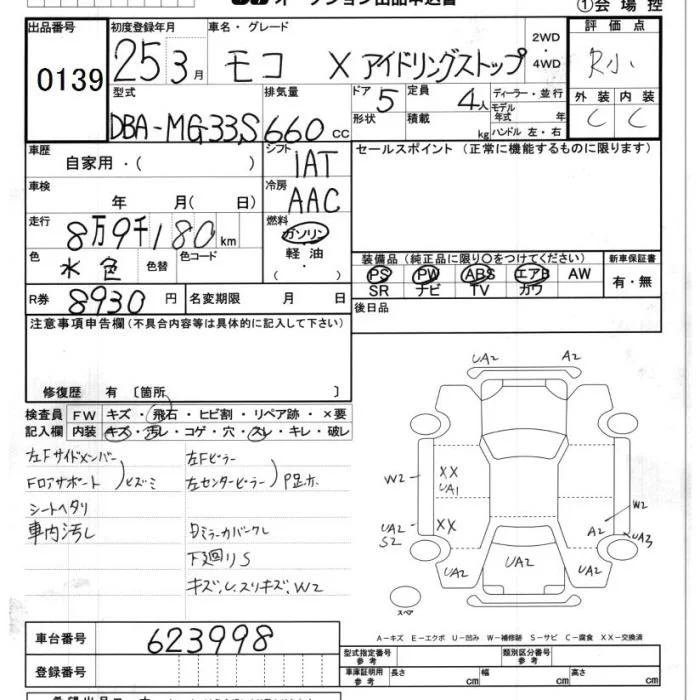 ①会場控
出品番号 0139
初度登録年月 25 3月
車名・グレード モコ X アイドリングストップ
2WD・4WD
評価点 R小
型式 DBA-MG33S
排気量 660 cc
ドア 5
定員 4人
ディーラー・並行
モデル年式 年
形状
積載 kg
ハンドル 左・右
外装 C
内装 C
車歴 自家用・( )
シフト IAT
セールスポイント (正常に機能するものに限ります)
車検 年 月( 日)
冷房 AAC
走行 8万9千180 km
燃料 ガソリン
軽油
( )
色 水色
色替
色コード
装備品 (純正品に限り○をつけてください)
新車保証書
PS PW ABS エアB AW
SR ナビ TV カワ
有・無
R券 8930 円
名変期限 月 日
後日品
注意事項申告欄 (不具合内容等は具体的に記入して下さい)
修復歴 有 〔箇所 〕
検査員 FW キズ・飛石・ヒビ割・リペア跡・×要
記入欄 内装 キズ・汚レ・コゲ・穴・スレ・キレ・破レ
左Fサイドメンバー
Fロアサポート )ヒズミ
シートヘタリ
車内汚レ
左Fピラー
左センターピラー )P足ホ
下廻りS
キズ、U、スリキズ、W2
UA2 A2
W2 XX UA1
XX
UA2 S2
W2
A2 UA3
UA2 UA2 UA2
スペア
A-キズ E-エクボ U-凹み W-補修跡 S-サビ C-腐食 XX-交換済
車台番号 623998
登録番号
型式指定番号 参考
類別区分番号 参考
車庫証明用 参考 長さ cm 幅 cm 高さ cm